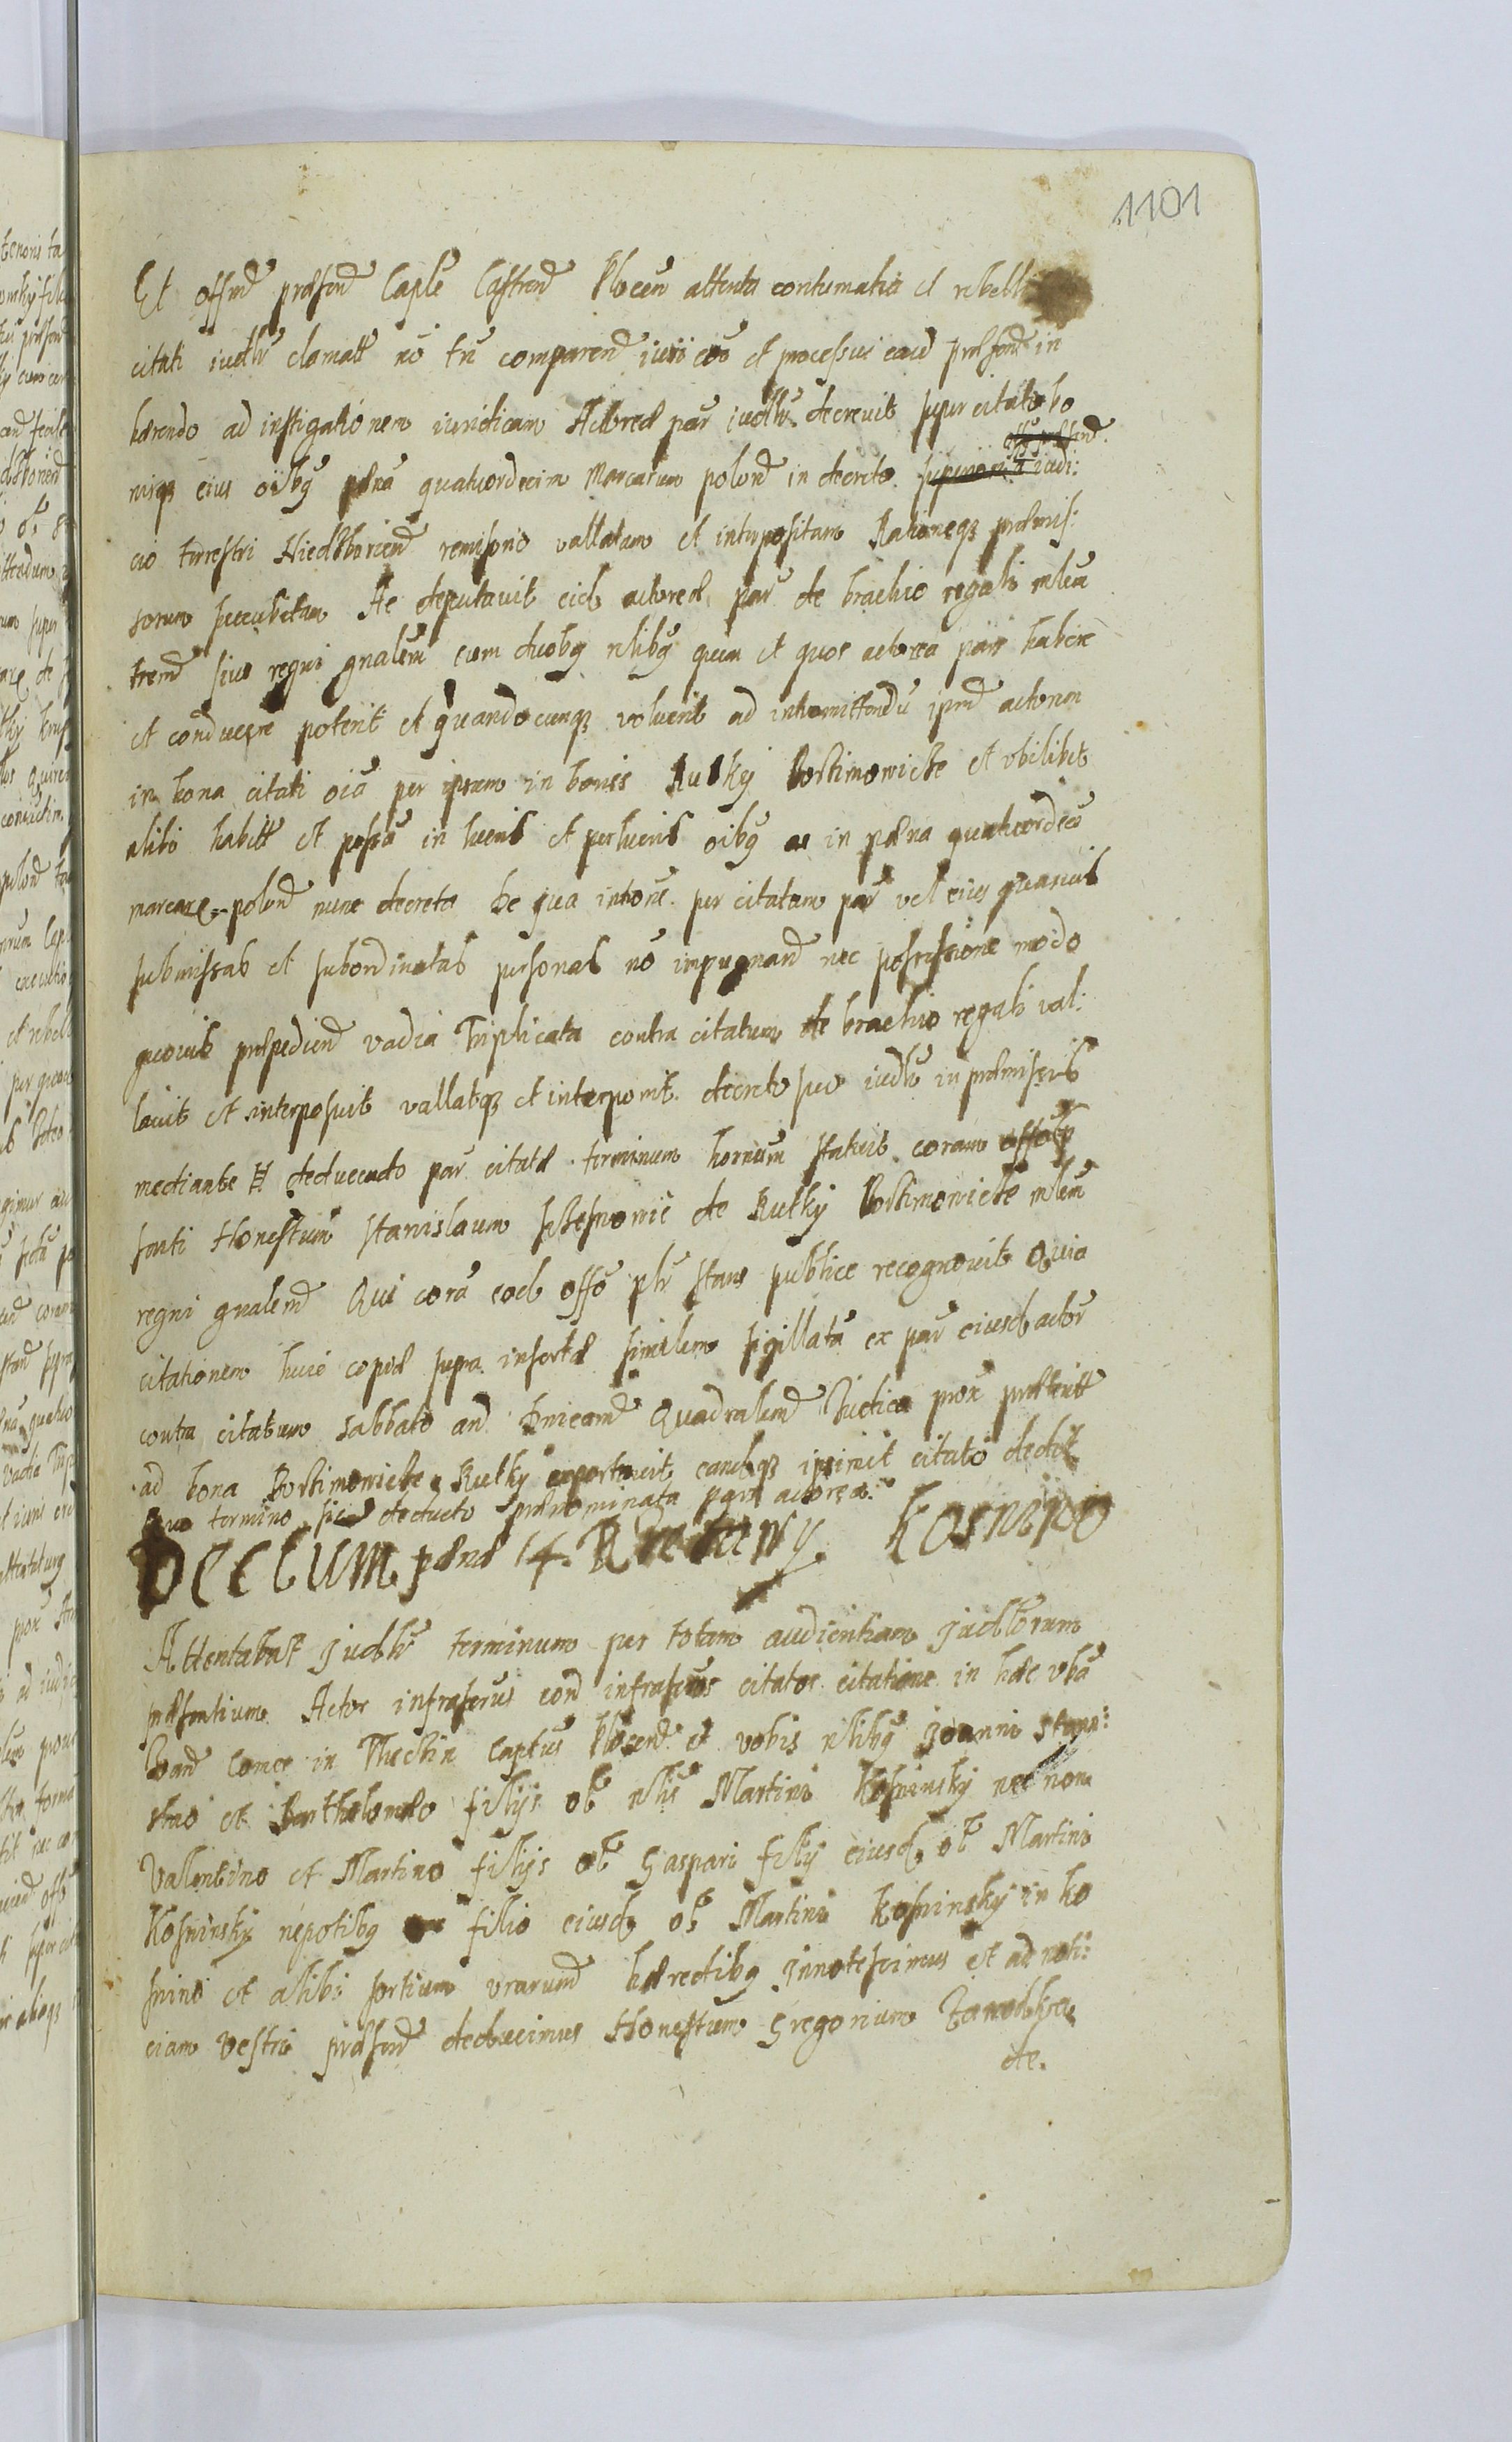 1101
Et offm̄ præsen̄ Caplē Castren̄ Plocen̄ attenta contumatia et rebelli
citati iudltr̄ clamatt nō tn̄ comparen̄ iuri eōo et processui eaud præsen̄ in
hærendo ad instigationem iuridicam Actoreæ par̄ iudltr̄ decrevit super citato bo
nisq3 eius oībq pæna quatuordecim Marcarum polon̄ in decreto iudi:
cio terrestri Niedzborien̄ remisorio vallatam et interpositam Rationeq3 præmis:
sorum succubitam Ac deputavit eid actoreæ par̄ de brachio regali mlem̄
tren̄ sive regni gnalem̄ cum duobq nlibq quem et quos actorea pars habere
et conducere poterit et quandocunq3 voluerit ad intromittendū ipm̄ actorem
in bona citati oīa per ipsum in bonis Rutky Bostimowicze et vbilibet
alibi habitt et possā in lucris et perlucris oībq ac in pæna quatuordecī
marcar. polon̄ nunc decreta De qua intōne per citatam par̄ vel eius quasvis
submissas et subordinatas personas nō impugnan̄ nec possessione modo
quovis præpedien̄ vadia Triplicata contra citatum de brachio regali val:
lavit et interposuit vallatq3 et interponit decreto suo iudlr̄ in præmissis
mediante Et deducendo par citatæ terminum hornum statuit coram offo præ
senti Honestum Stanislaum de Rutky Bostimowicze mlem̄
regni gnalem̄ Qui corā eod offō pltr̄ stans publice recognovit Quia
citationem huic copiæ supra insertæ similem sigillatā ex par̄ eiusd actor̄
contra citatum sabbato an̄ Dnicam̄ Quadralem̄ Iudica prox̄ præteritt
ad bona Bostimowicze Rutky exportavit eandq3 ipimet citato dedit
Quo termino sic deducto prænominata pars actorea.
Decctum pænæ 14. Rzeczny. Kosnino
Attentabat Judltr̄ terminum per totam audientiam Judltorum
præsentium Actor infrascrus con̄ infrascros citatos citatione in hæc vba
Dan̄ Comes in Thechin Captus Plocen̄ et vobis nlibq Joanni Stani:
slao et Bartholomeo filijs ol̄ nlis Martini Kosninsky nec non
Valentino et Martino filijs ol̄ Gaspari filij eiusd ol̄ Martini
Kosninsky nepotibq filio eiusd ol̄ Martini Kosninsky in ko
snino et alibi sortium vrarum̄ hæredibq Innotescimus et ad noti:
ciam vestri præsen̄ deducimus Honestum Gregorium
de.